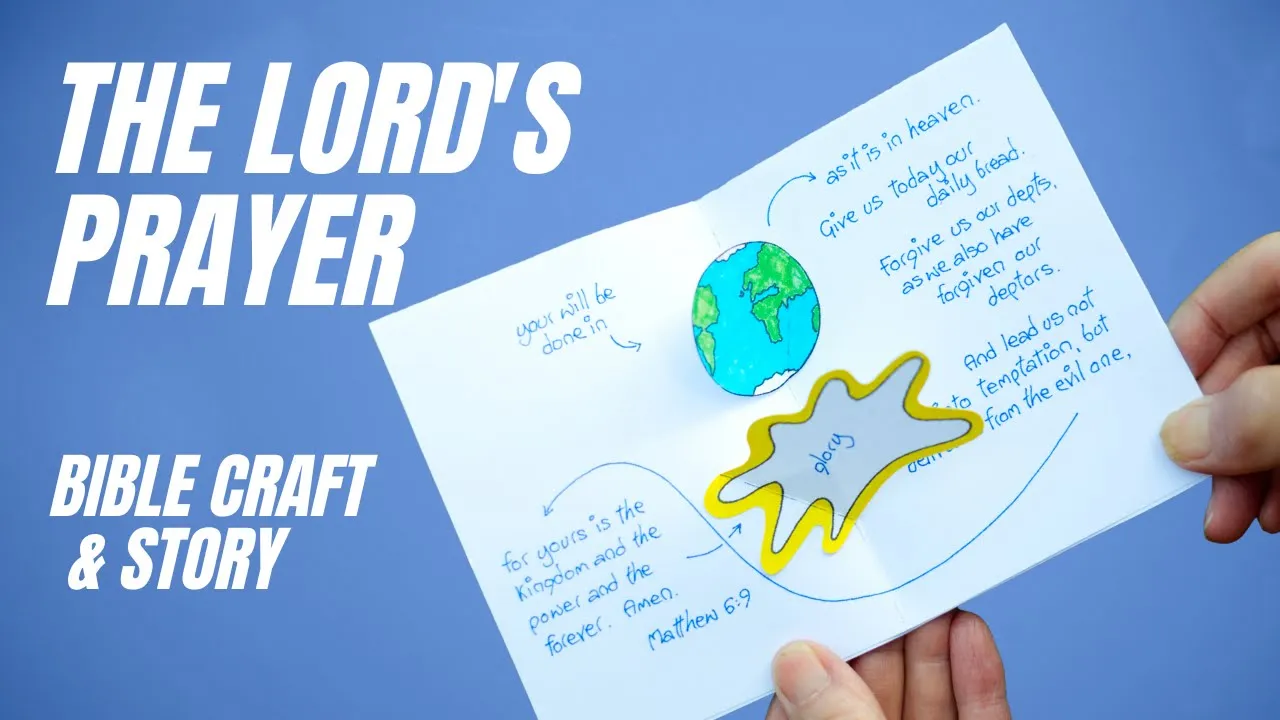 THE LORD'S
PRAYER
BIBLE CRAFT
& STORY
your will be
done in
as it is in heaven.
Give us today our
daily bread.
Forgive us our depts,
as we also have
forgiven our
deptors.
And lead us not
temptation, but
from the evil one,
glory
for yours is the
kingdom and the
power and the
forever. Amen.
Matthew 6:9